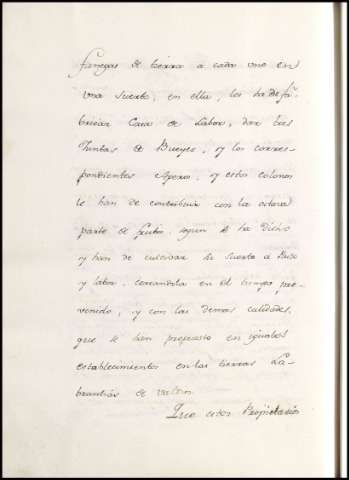 fanegas de tierra a cada uno en
una suerte, en ella, les ha de fa-
bricar Casa de Labor, dar tres
Juntas de Bueyes, y los corres-
pondientes Aperos, y estos colonos
le han de contribuir con la octava
parte de frutos, segun se ha dicho
y han de cultivar la suerte a Uso
y labor, cercandola en el tiempo pre-
venido, y con las demas calidades,
que se han propuesto en iguales
establecimientos en las tierras La-
brantias de valdin
Que estos Propietarios